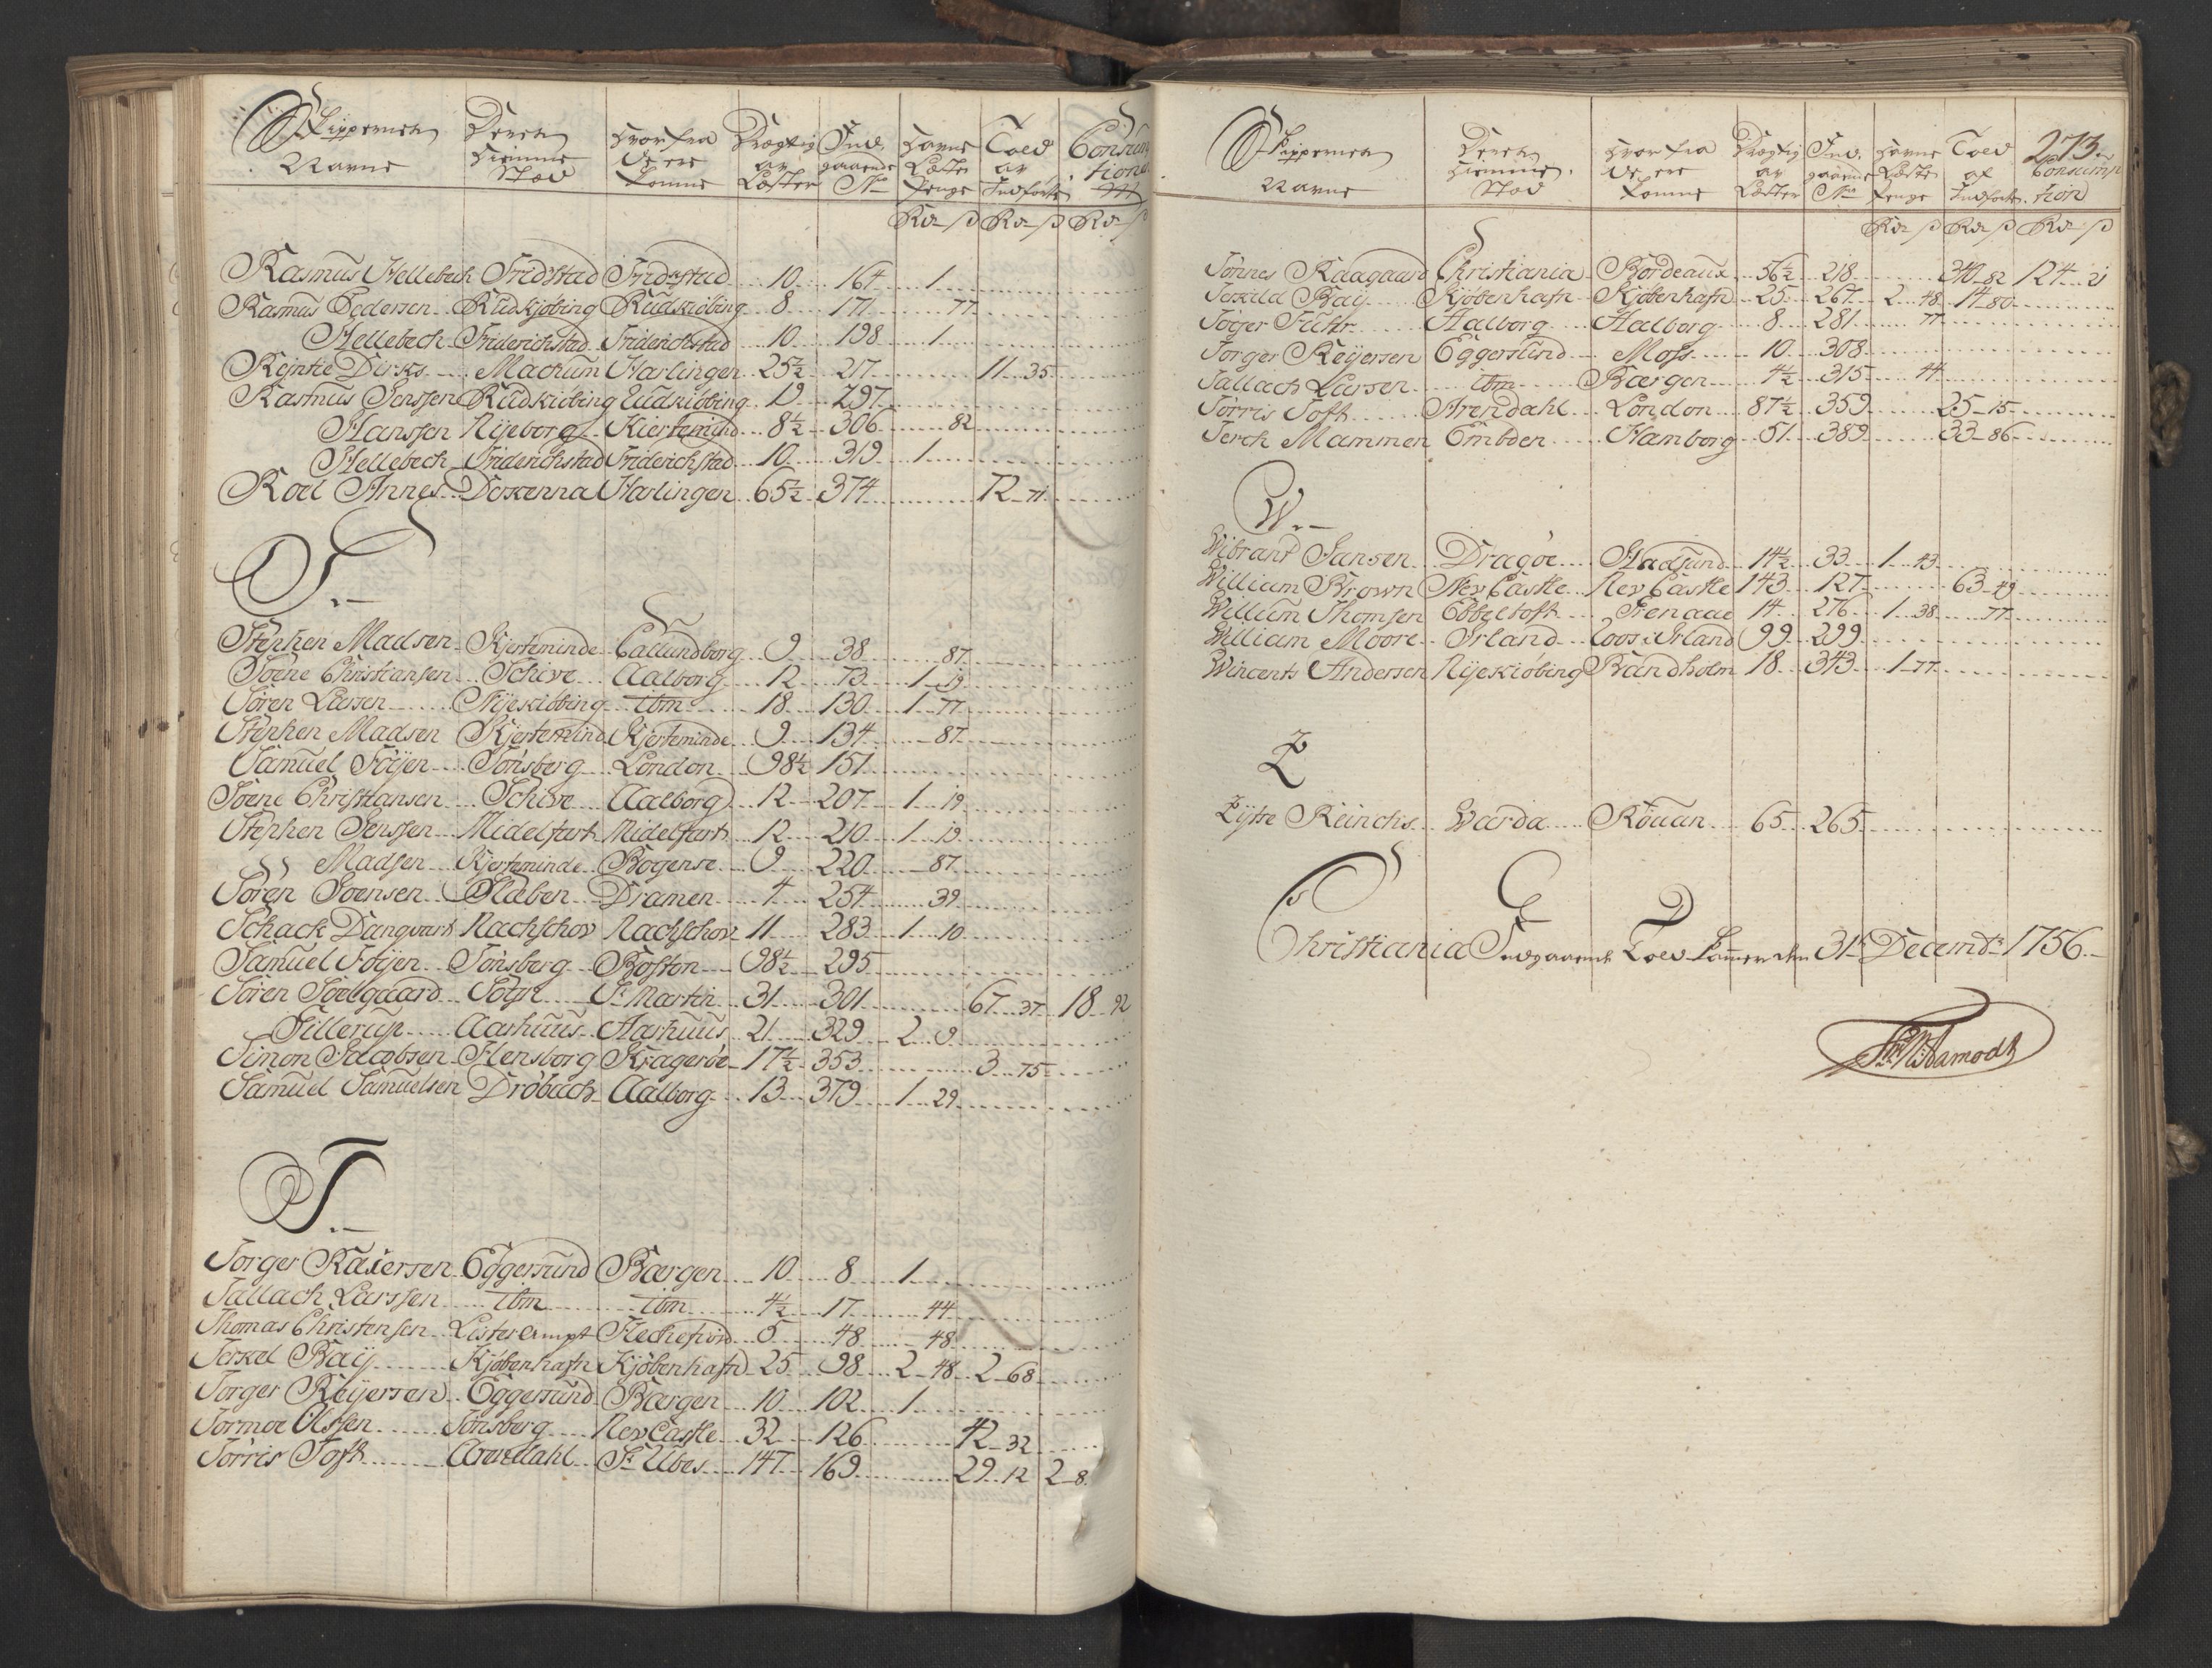 Skippernes Navne | Deres Hiemme Stæd | Hvor fra de ere komne | Drægtig av Læster | Ind gaaende No | Havne Læste Penge | Told av Indførte | Consumtion
Rdr ß | Rdr ß | Rdr ß
Rasmus Hellebech Fridrstad Fridrstad 10 164 1
Rasmus Pedersen Rudkjøbing Rudkiøbing 8 171 77
Hellebech Friderichstad Friderichstad 10 198 1
Rijntie Dirks Mackum Harlingen 25½ 217 11 35
Rasmus Jenssen Rudkiøbing Rudkiøbing 19 297
Hanssen Nijeborg Kiertemind 8½ 306 82
Hellebech Friderichstad Friderichstad 10 319 1
Roel Annes Harlingen 65½ 374 72 71
S.
Stephen Madsen Kjerteminde Callundborg 9 38 87
Soene Christiansen Schive Aalborg 12 73 1 19
Søren Larsen Nijekiøbing ibm 18 130 1 77
Stephen Madsen Kjertemind Kjerteminde 9 134 87
Samuel Føijen Tønsberg London 98½ 151
Soene Christiansen Schive Aalborg 12 207 1 19
Stephen Jenssen Midelfart Midelfart 12 210 1 19
Madsen Kjerteminde Bogense 9 220 87
Søren Soensen Dramen 4 254 39
Schack Danqvart Nachschov Nachschov 11 283 1 10
Samuel Føijen Tønsberg Boston 98½ 295
Søren Soelgaard St Martin 31 301 67 37 18 92
Fillerup Aarhuus Aarhuus 21 329 2 9
Simon Jacobsen Flensborg Kragerøe 17½ 353 3 75
Samuel Samuelsen Drøbach Aalborg 13 379 1 29
T.
Torger Raiersen Eggersund Bærgen 10 8 1
Tallach Larssen ibm ibm 4½ 17 44
Thomas Christensen Lister Ampt Flechefiord 5 48 48
Terkel Baij Kjøbenhafn Kjøbenhafn 25 98 2 48 2 68
Torger Reijersen Eggersund Bærgen 10 102 1
Tormoe Olssen Tønsberg Nev Castle 32 126 42 32
Tørris Toft Arendahl St Ubes 147 169 29 12 2 8
273
Skippernes Navne | Deres Hiemme Stæd | Hvor fra de ere komne | Drægtig av Læster | Ind gaaende No | Havne Læste Penge | Told af Indførte | Consumption
Rdr ß | Rdr ß | Rdr ß
Tønnes Kaagaard Christiania Bordeaux 56½ 218 340 82 124 21
Terkild Baij Kjøbenhafn Kjøbenhafn 25 267 2 48 14 80
Aalborg Aalborg 8 281 77
Torger Reijersen Eggersund Moss 10 308
Tallach Larsen ibm Bærgen 4½ 315 44
Tørris Toft Arendahl London 87½ 359 25 15
Terck Mammen Embden Hamborg 51 389 33 86
W.
Wibrant Jansen Dragøe Hadsund 14½ 33 1 43
William Brown Nev Castle Nev Castle 143 127 63 49
Willum Thomsen Ebbeltoft Grenaae 14 276 1 38 77
William Moore Irland Irland 99 299
Wincents Andersen Nijekiøbing Bandholm 18 343 1 77
Z
Zijtte Reinchs Warda Röuan 65 265
Christiania Indgaaende Told Kammer den 31te Decembr 1756